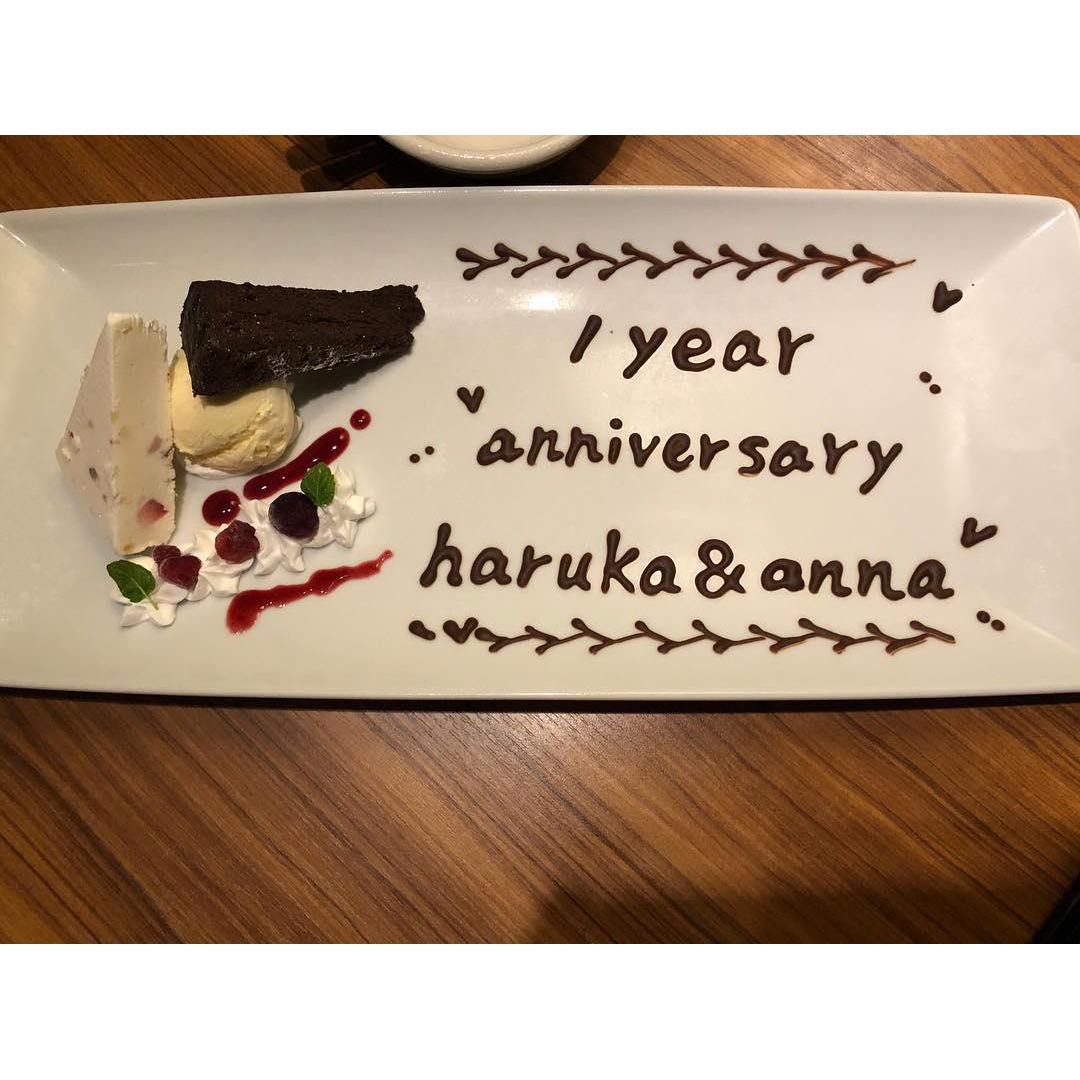 1 year
anniversary
haruka & anna